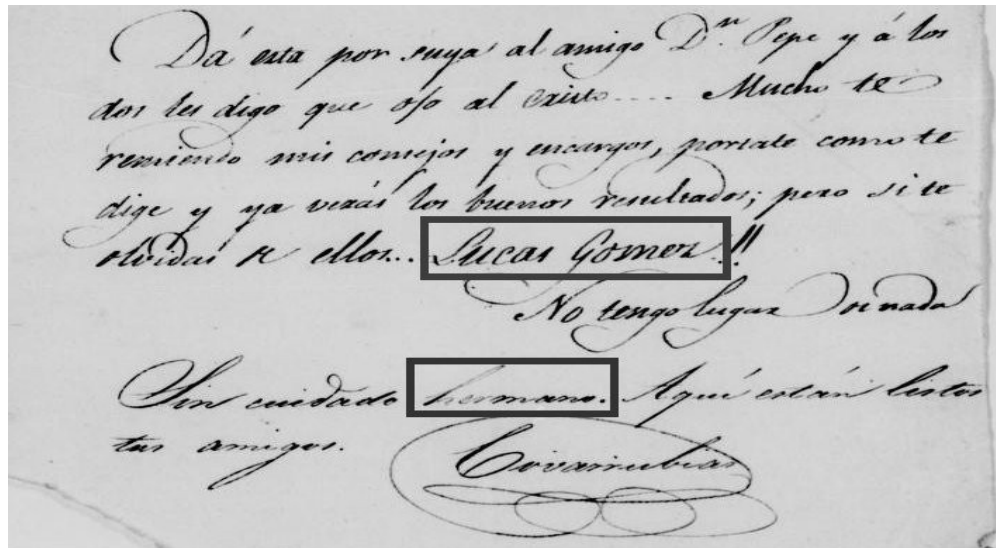 Dá esta por suya al amigo Dn. Pepe y á los
dos les digo que ojo al Cristo.... Mucho te
remiendo mis consejos y encargos, portate como te
dige y ya verás los buenos resultados; pero si te
olvidas de ellos... Lucas Gomez!!
No tengo lugar de nada
Sin cuidado hermano. Aquí están listos
tus amigos.
Covarrubias